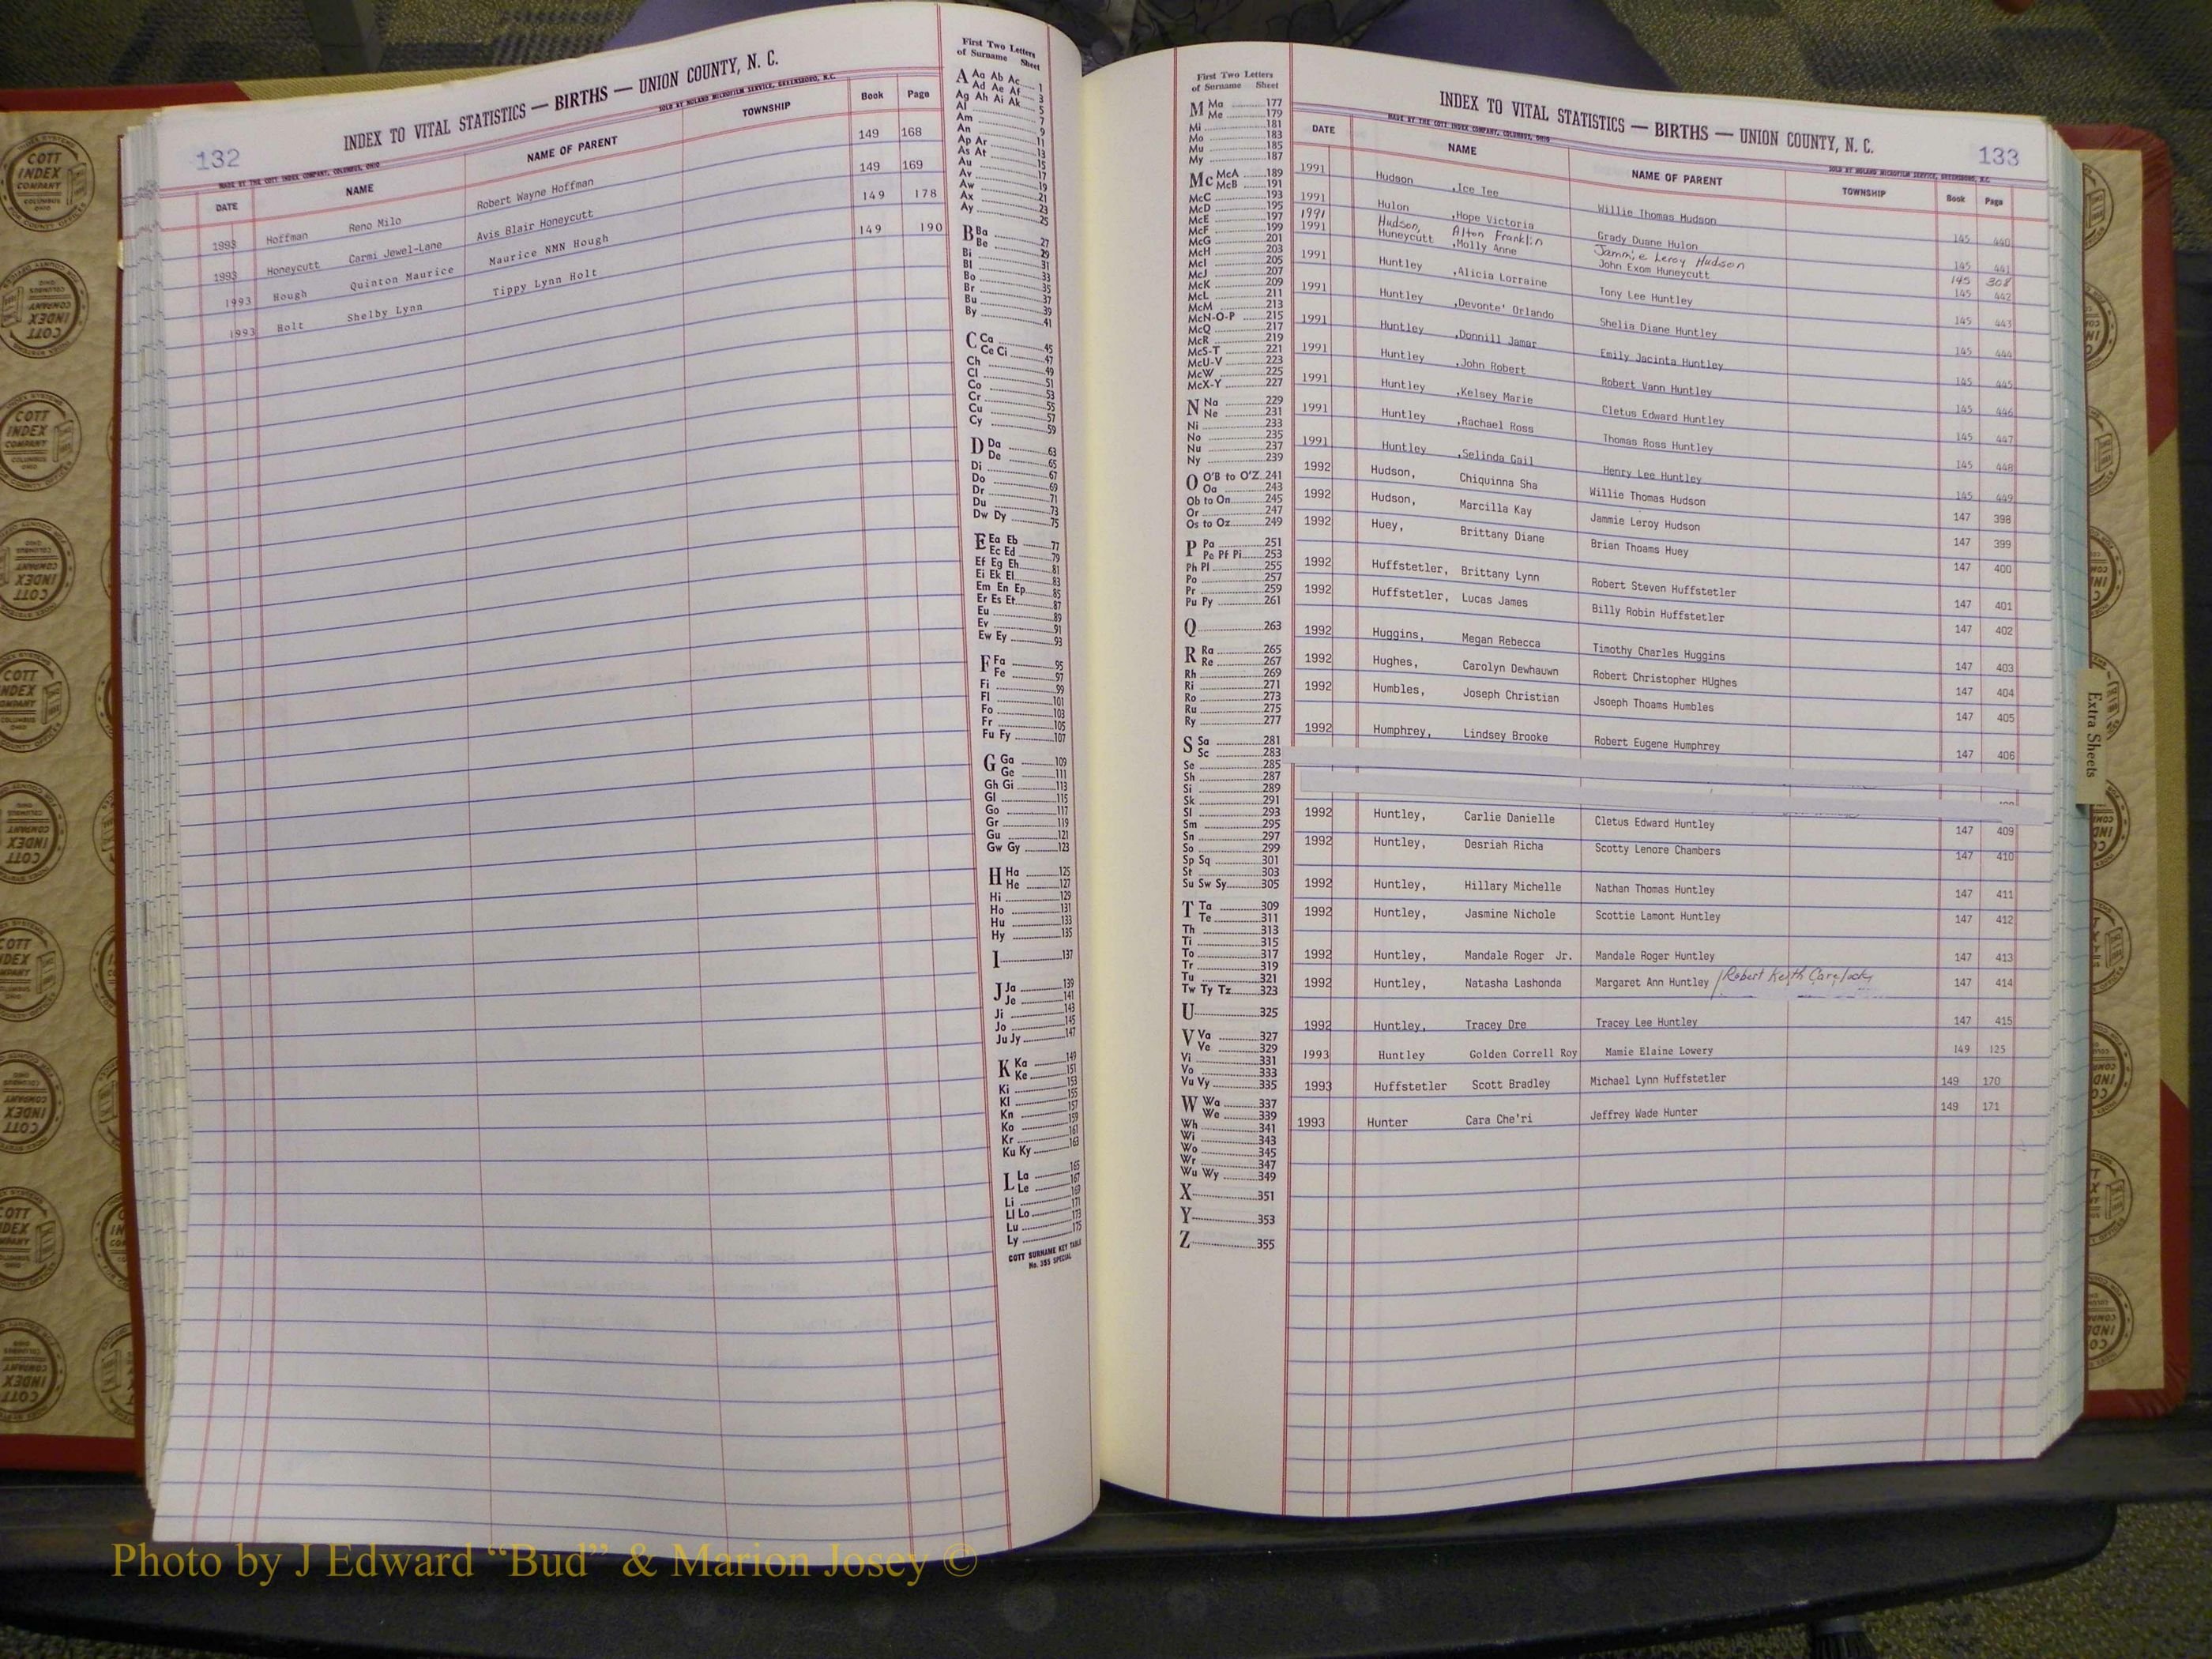 132
INDEX TO VITAL STATISTICS — BIRTHS — UNION COUNTY, N. C.
MADE BY THE COTT INDEX COMPANY, COLUMBUS, OHIO SOLD BY NOLAND MICROFILM SERVICE, GREENSBORO, N.C.
DATE NAME NAME OF PARENT TOWNSHIP Book Page
1993 Hoffman Reno Milo Robert Wayne Hoffman 149 168
1993 Honeycutt Carmi Jewel-Lane Avis Blair Honeycutt 149 169
1993 Hough Quinton Maurice Maurice NMN Hough 149 178
1993 Holt Shelby Lynn Tippy Lynn Holt 149 190
First Two Letters
of Surname Sheet
A Aa Ab Ac 1
Ad Ae Af 3
Ag Ah Ai Ak 5
Al 7
Am 9
An 11
Ap Ar 13
As At 15
Au 17
Av 19
Aw 21
Ax 23
Ay 25
B Ba 27
Be 29
Bi 31
Bl 33
Bo 35
Br 37
Bu 39
By 41
C Ca 45
Ce Ci 47
Ch 49
Cl 51
Co 53
Cr 55
Cu 57
Cy 59
D Da 63
De 65
Di 67
Do 69
Dr 71
Du 73
Dw Dy 75
E Ea Eb 77
Ec Ed 79
Ef Eg Eh 81
Ei Ek El 83
Em En Ep 85
Er Es Et 87
Eu 89
Ev 91
Ew Ey 93
F Fa 95
Fe 97
Fi 99
Fl 101
Fo 103
Fr 105
Fu Fy 107
G Ga 109
Ge 111
Gh Gi 113
Gl 115
Go 117
Gr 119
Gu 121
Gw Gy 123
H Ha 125
He 127
Hi 129
Ho 131
Hu 133
Hy 135
I 137
J Ja 139
Je 141
Ji 143
Jo 145
Ju Jy 147
K Ka 149
Ke 151
Ki 153
Kl 155
Kn 157
Ko 159
Kr 161
Ku Ky 163
L La 165
Le 167
Li 169
Ll Lo 171
Lu 173
Ly 175
COTT SURNAME KEY TABLE
No. 355 SPECIAL
First Two Letters
of Surname Sheet
M Ma 177
Me 179
Mi 181
Mo 183
Mu 185
My 187
Mc McA 189
McB 191
McC 193
McD 195
McE 197
McF 199
McG 201
McH 203
McI 205
McJ 207
McK 209
McL 211
McM 213
McN-O-P 215
McQ 217
McR 219
McS-T 221
McU-V 223
McW 225
McX-Y 227
N Na 229
Ne 231
Ni 233
No 235
Nu 237
Ny 239
O O'B to O'Z 241
Oa 243
Ob to On 245
Or 247
Os to Oz 249
P Pa 251
Pe Pf Pi 253
Ph Pl 255
Po 257
Pr 259
Pu Py 261
Q 263
R Ra 265
Re 267
Rh 269
Ri 271
Ro 273
Ru 275
Ry 277
S Sa 281
Sc 283
Se 285
Sh 287
Si 289
Sk 291
Sl 293
Sm 295
Sn 297
So 299
Sp Sq 301
St 303
Su Sw Sy 305
T Ta 309
Te 311
Th 313
Ti 315
To 317
Tr 319
Tu 321
Tw Ty Tz 323
U 325
V Va 327
Ve 329
Vi 331
Vo 333
Vu Vy 335
W Wa 337
We 339
Wh 341
Wi 343
Wo 345
Wr 347
Wu Wy 349
X 351
Y 353
Z 355
INDEX TO VITAL STATISTICS — BIRTHS — UNION COUNTY, N. C.
133
MADE BY THE COTT INDEX COMPANY, COLUMBUS, OHIO SOLD BY NOLAND MICROFILM SERVICE, GREENSBORO, N.C.
DATE NAME NAME OF PARENT TOWNSHIP Book Page
1991 Hudson ,Ice Tee Willie Thomas Hudson 145 440
1991 Hulon ,Hope Victoria Grady Duane Hulon 145 441
1991 Hudson, Alton Franklin Jammie Leroy Hudson 145 308
1991 Huneycutt ,Molly Anne John Exom Huneycutt 145 442
1991 Huntley ,Alicia Lorraine Tony Lee Huntley 145 443
1991 Huntley ,Devonte' Orlando Shelia Diane Huntley 145 444
1991 Huntley ,Donnill Jamar Emily Jacinta Huntley 145 445
1991 Huntley ,John Robert Robert Vann Huntley 145 446
1991 Huntley ,Kelsey Marie Cletus Edward Huntley 145 447
1991 Huntley ,Rachael Ross Thomas Ross Huntley 145 448
1991 Huntley ,Selinda Gail Henry Lee Huntley 145 449
1992 Hudson, Chiquinna Sha Willie Thomas Hudson 147 398
1992 Hudson, Marcilla Kay Jammie Leroy Hudson 147 399
1992 Huey, Brittany Diane Brian Thoams Huey 147 400
1992 Huffstetler, Brittany Lynn Robert Steven Huffstetler 147 401
1992 Huffstetler, Lucas James Billy Robin Huffstetler 147 402
1992 Huggins, Megan Rebecca Timothy Charles Huggins 147 403
1992 Hughes, Carolyn Dewhauwn Robert Christopher HUghes 147 404
1992 Humbles, Joseph Christian Jsoeph Thoams Humbles 147 405
1992 Humphrey, Lindsey Brooke Robert Eugene Humphrey 147 406
1992 Huntley, Carlie Danielle Cletus Edward Huntley 147 409
1992 Huntley, Desriah Richa Scotty Lenore Chambers 147 410
1992 Huntley, Hillary Michelle Nathan Thomas Huntley 147 411
1992 Huntley, Jasmine Nichole Scottie Lamont Huntley 147 412
1992 Huntley, Mandale Roger Jr. Mandale Roger Huntley 147 413
1992 Huntley, Natasha Lashonda Margaret Ann Huntley / Robert Keith 147 414
1992 Huntley, Tracey Dre Tracey Lee Huntley 147 415
1993 Huntley Golden Correll Roy Mamie Elaine Lowery 149 125
1993 Huffstetler Scott Bradley Michael Lynn Huffstetler 149 170
1993 Hunter Cara Che'ri Jeffrey Wade Hunter 149 171
Extra Sheets
COTT INDEX COMPANY
Photo by J Edward “Bud” & Marion Josey ©